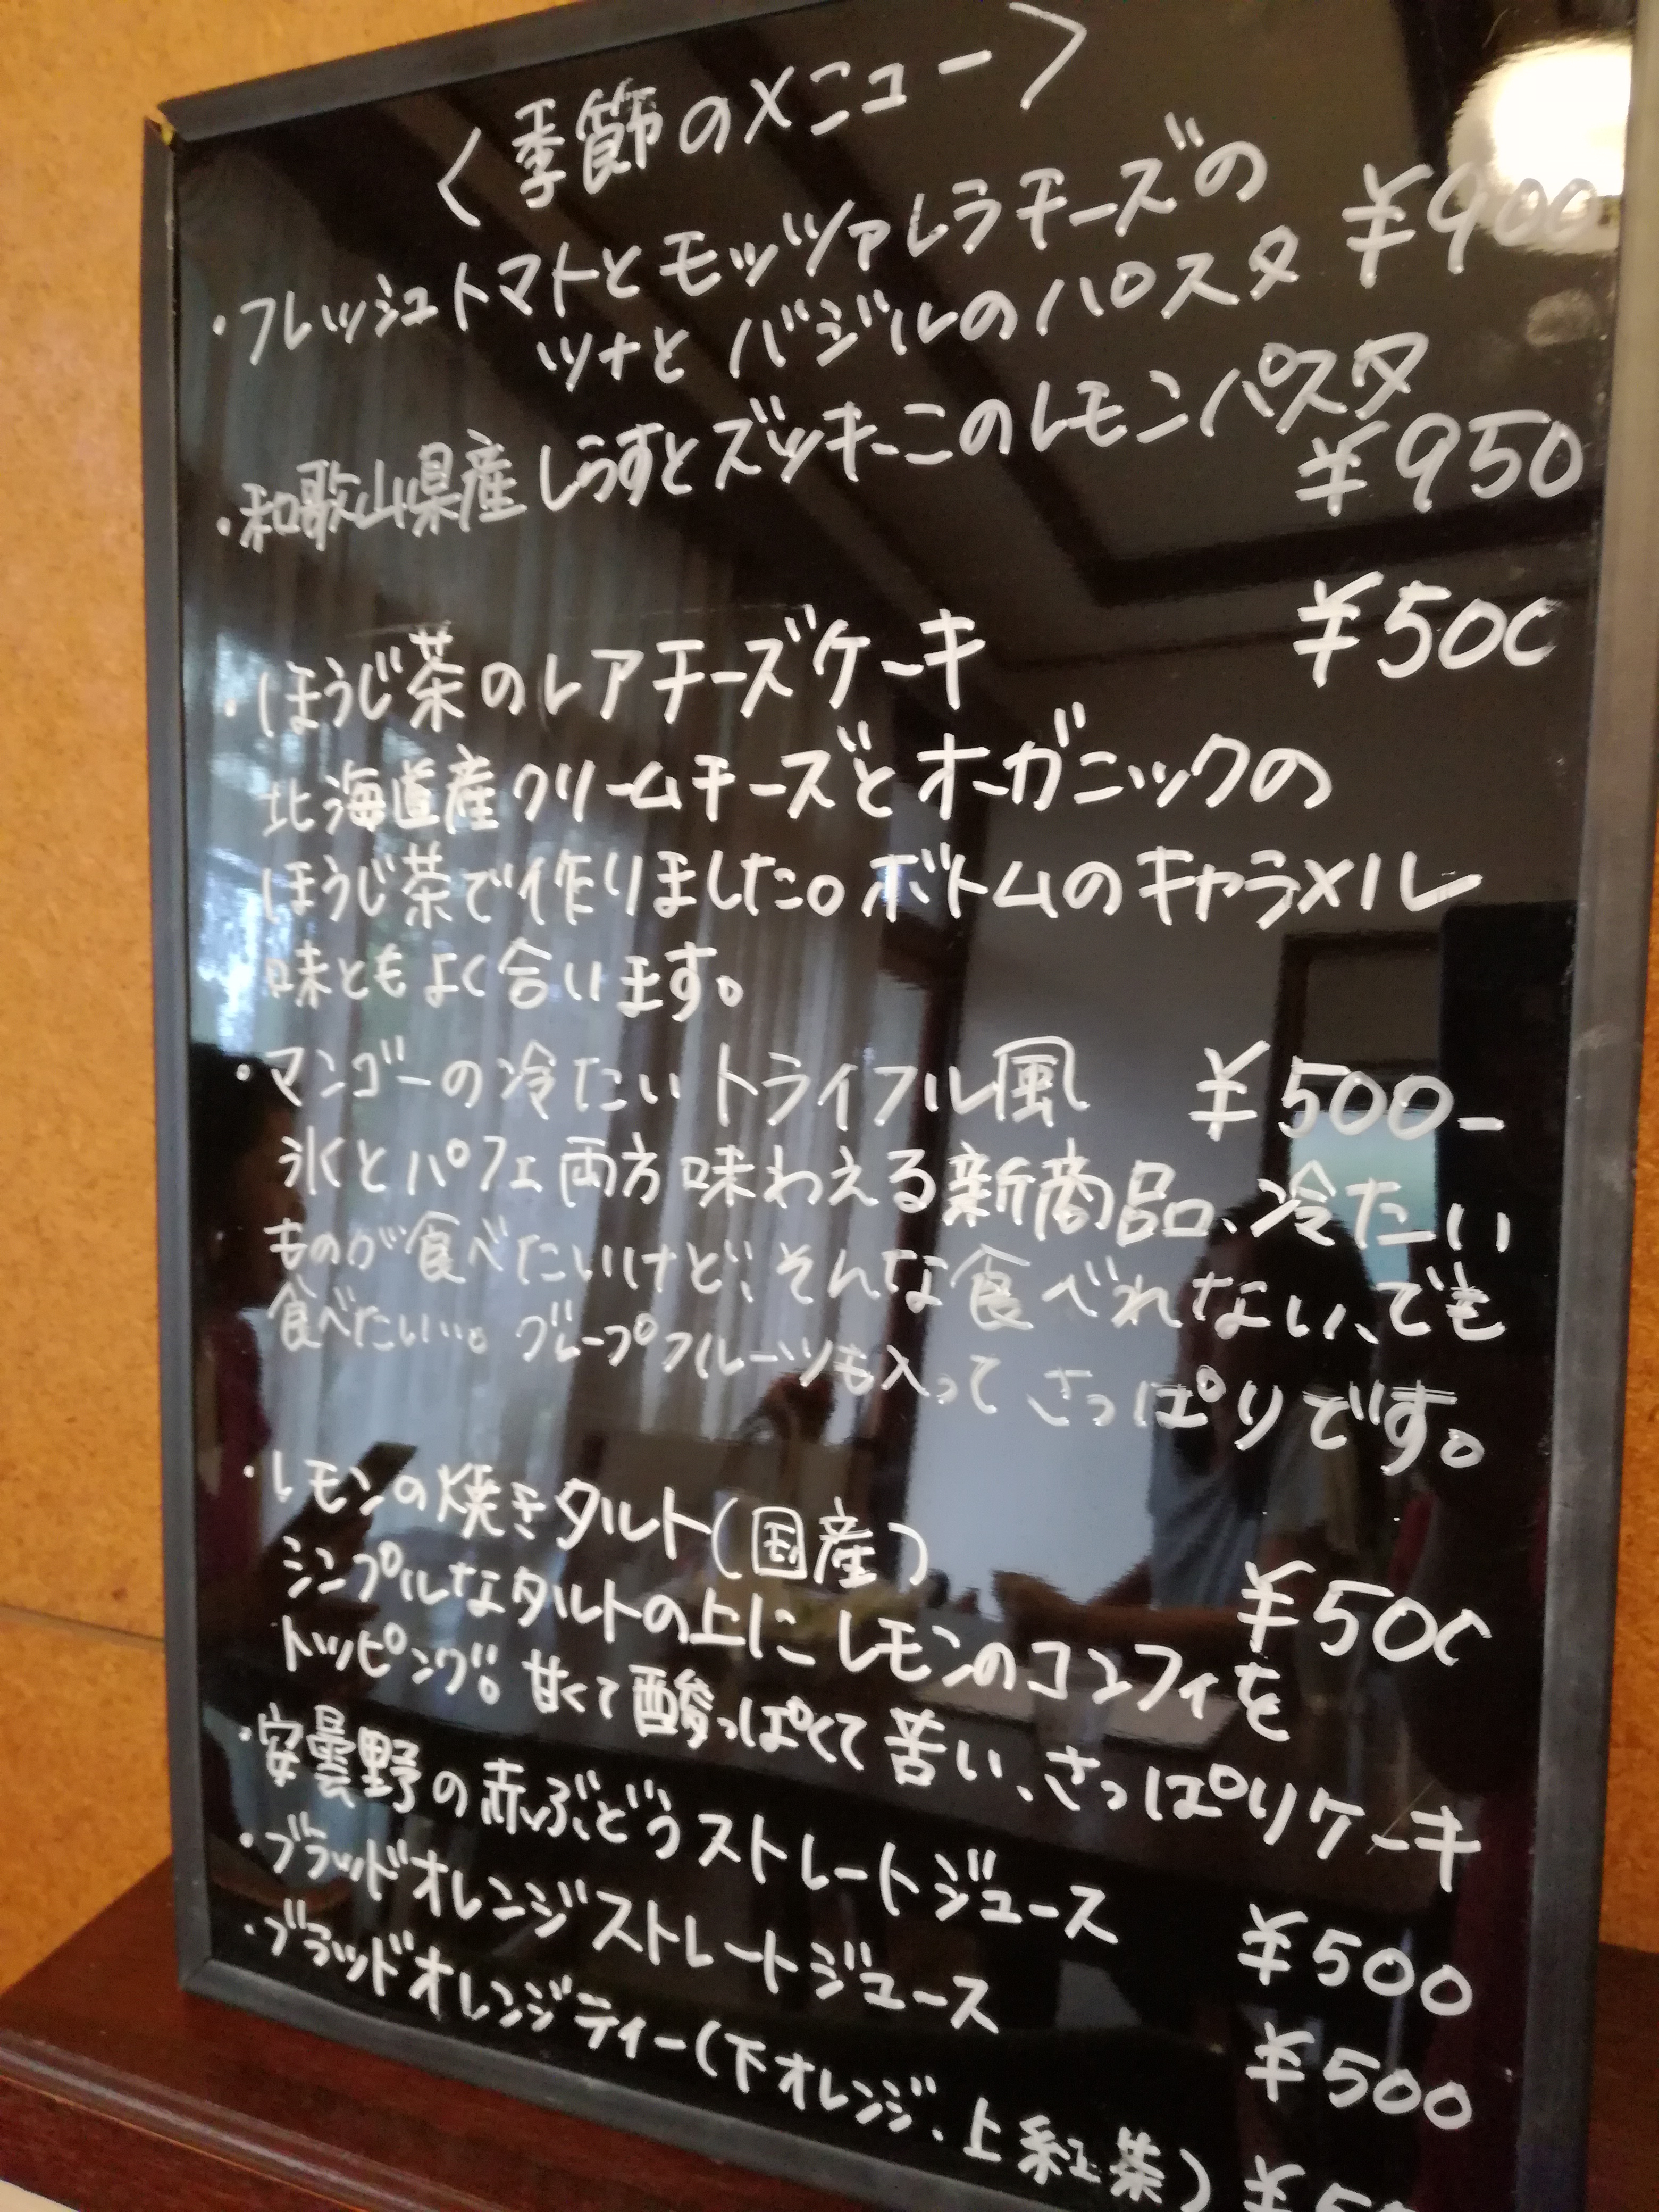 〈季節のメニュー〉
・フレッシュトマトとモッツァレラチーズの
ツナとバジルのパスタ ¥900
・和歌山県産しらすとズッキーニのレモンパスタ
¥950
・ほうじ茶のレアチーズケーキ ¥500
北海道産クリームチーズとオーガニックの
ほうじ茶で作りました。ボトムのキャラメル
味ともよく合います。
・マンゴーの冷たいトライフル風 ¥500-
氷とパフェ両方味わえる新商品。冷たい
ものが食べたいけど、そんな食べれない、でも
食べたい…。グレープフルーツも入ってさっぱりです。
・レモンの焼きタルト(国産) ¥500
シンプルなタルトの上にレモンのコンフィを
トッピング。甘くて酸っぱくて苦い、さっぱりケーキ
・安曇野の赤ぶどうストレートジュース ¥500
・ブラッドオレンジストレートジュース ¥500
・ブラッドオレンジティー(下オレンジ、上紅茶)